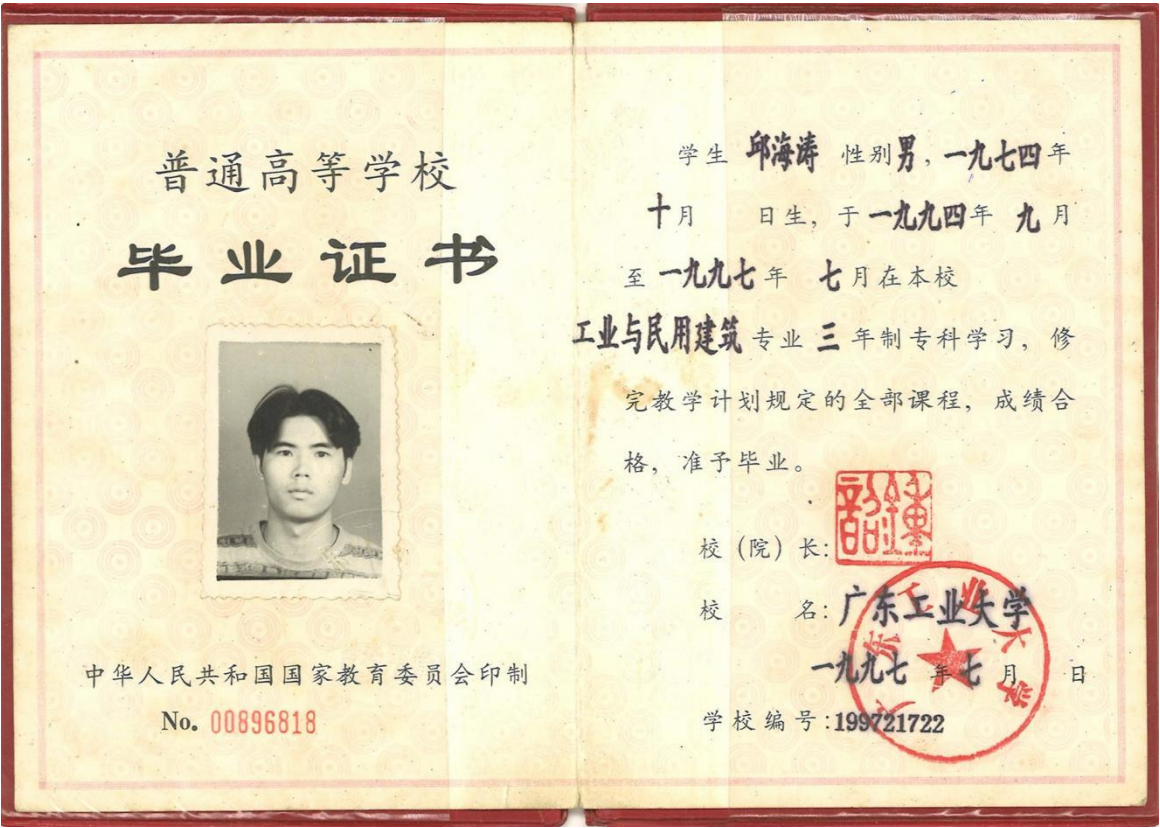 普通高等学校
毕业证书
中华人民共和国国家教育委员会印制
No. 00896818
学生 邱海涛 性别男，一九七四年
十月 日生，于一九九四年 九月
至一九九七年 七月在本校
工业与民用建筑专业 三 年制专科学习，修
完教学计划规定的全部课程，成绩合
格，准予毕业。
校（院）长：
校 名：广东工业大学
一九九七 年七月 日
学校编号：199721722
广东工业大学